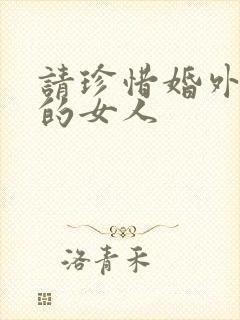 請珍惜婚外
的女人
洛青禾